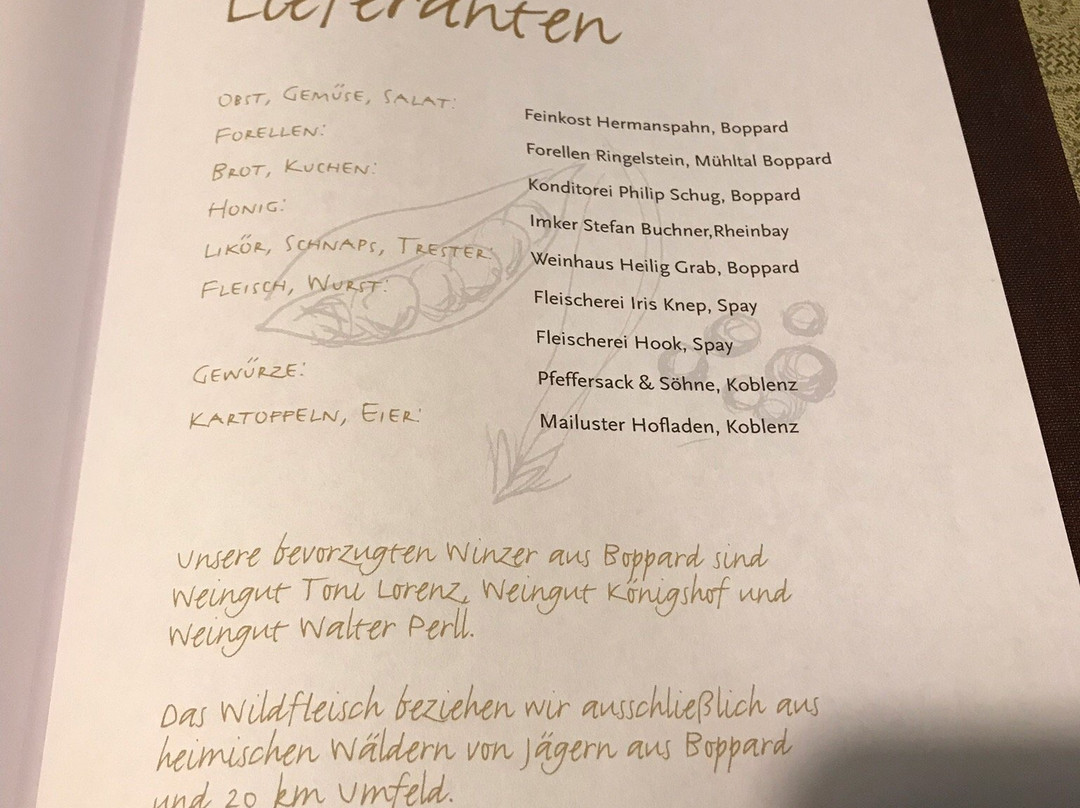 Lieferanten
OBST, GEMÜSE, SALAT: Feinkost Hermanspahn, Boppard
FORELLEN: Forellen Ringelstein, Mühltal Boppard
BROT, KUCHEN: Konditorei Philip Schug, Boppard
HONIG: Imker Stefan Buchner,Rheinbay
LIKÖR, SCHNAPS, TRESTER: Weinhaus Heilig Grab, Boppard
FLEISCH, WURST: Fleischerei Iris Knep, Spay
Fleischerei Hook, Spay
GEWÜRZE: Pfeffersack & Söhne, Koblenz
KARTOFFELN, EIER: Mailuster Hofladen, Koblenz
Unsere bevorzugten Winzer aus Boppard sind
Weingut Toni Lorenz, Weingut Königshof und
Weingut Walter Perll.
Das Wildfleisch beziehen wir ausschließlich aus
heimischen Wäldern von Jägern aus Boppard
und 20 km Umfeld.